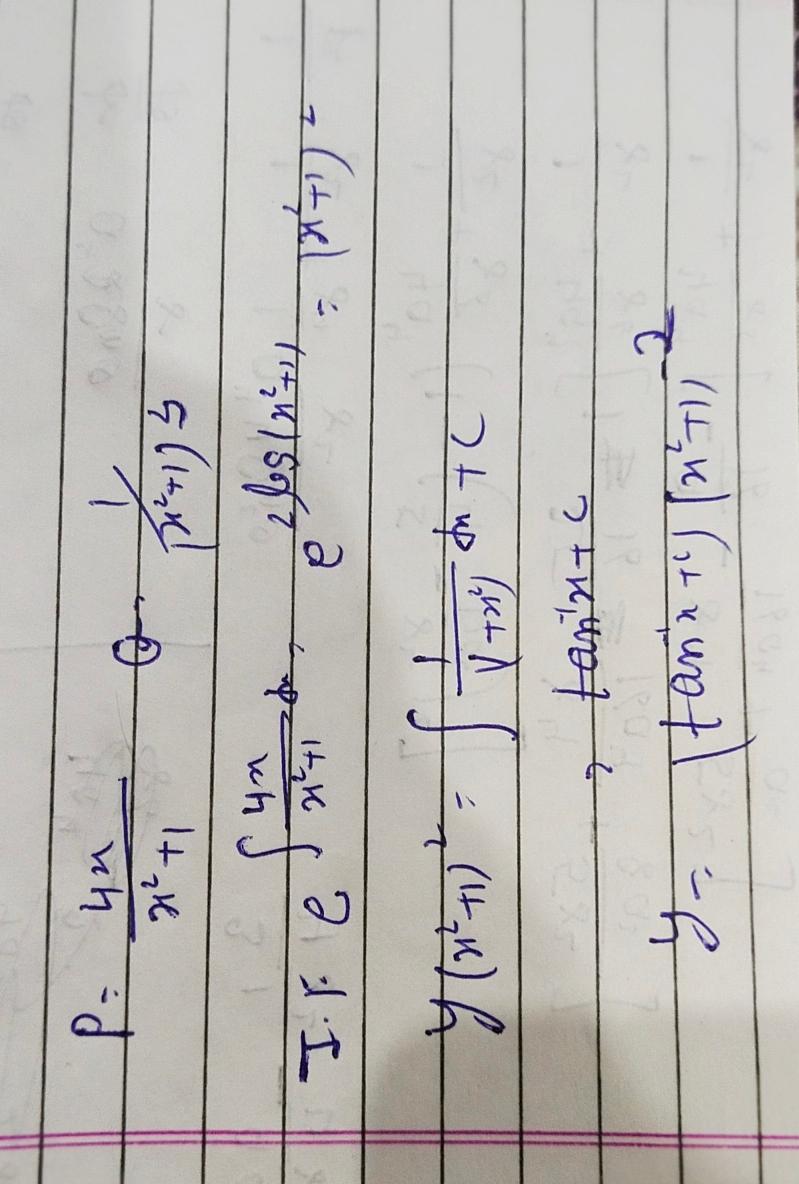 P = 4x/(x²+1) Q = 1/(x²+1)⁵
I.F = e^∫ 4x/(x²+1) dx = e^2log(x²+1) = (x²+1)²
y(x²+1)² = ∫ 1/(1+x²) dx + c
= tan⁻¹x + c
y = (tan⁻¹x + c) (x²+1)⁻²